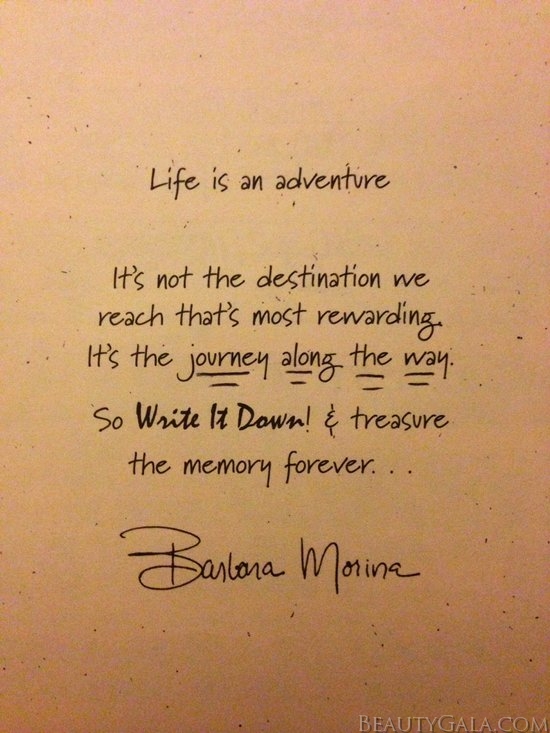 Life is an adventure
It's not the destination we
reach that's most rewarding.
It's the journey along the way.
So Write It Down! & treasure
the memory forever. . .
Barbara Morina
BEAUTYGALA.COM